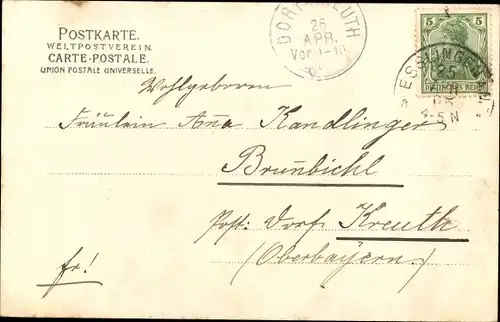 POSTKARTE.
WELTPOSTVEREIN.
CARTE-POSTALE.
UNION POSTALE UNIVERSELLE.
DORF KREUTH
26
APR.
5 5
DEUTSCHES REICH
ESSLINGEN
25
4-5 N
Wohlgeboren
Fräulein Anna Kandlinger
Brunbichl
Post: Dorf Kreuth
(Oberbayern.)
fr!